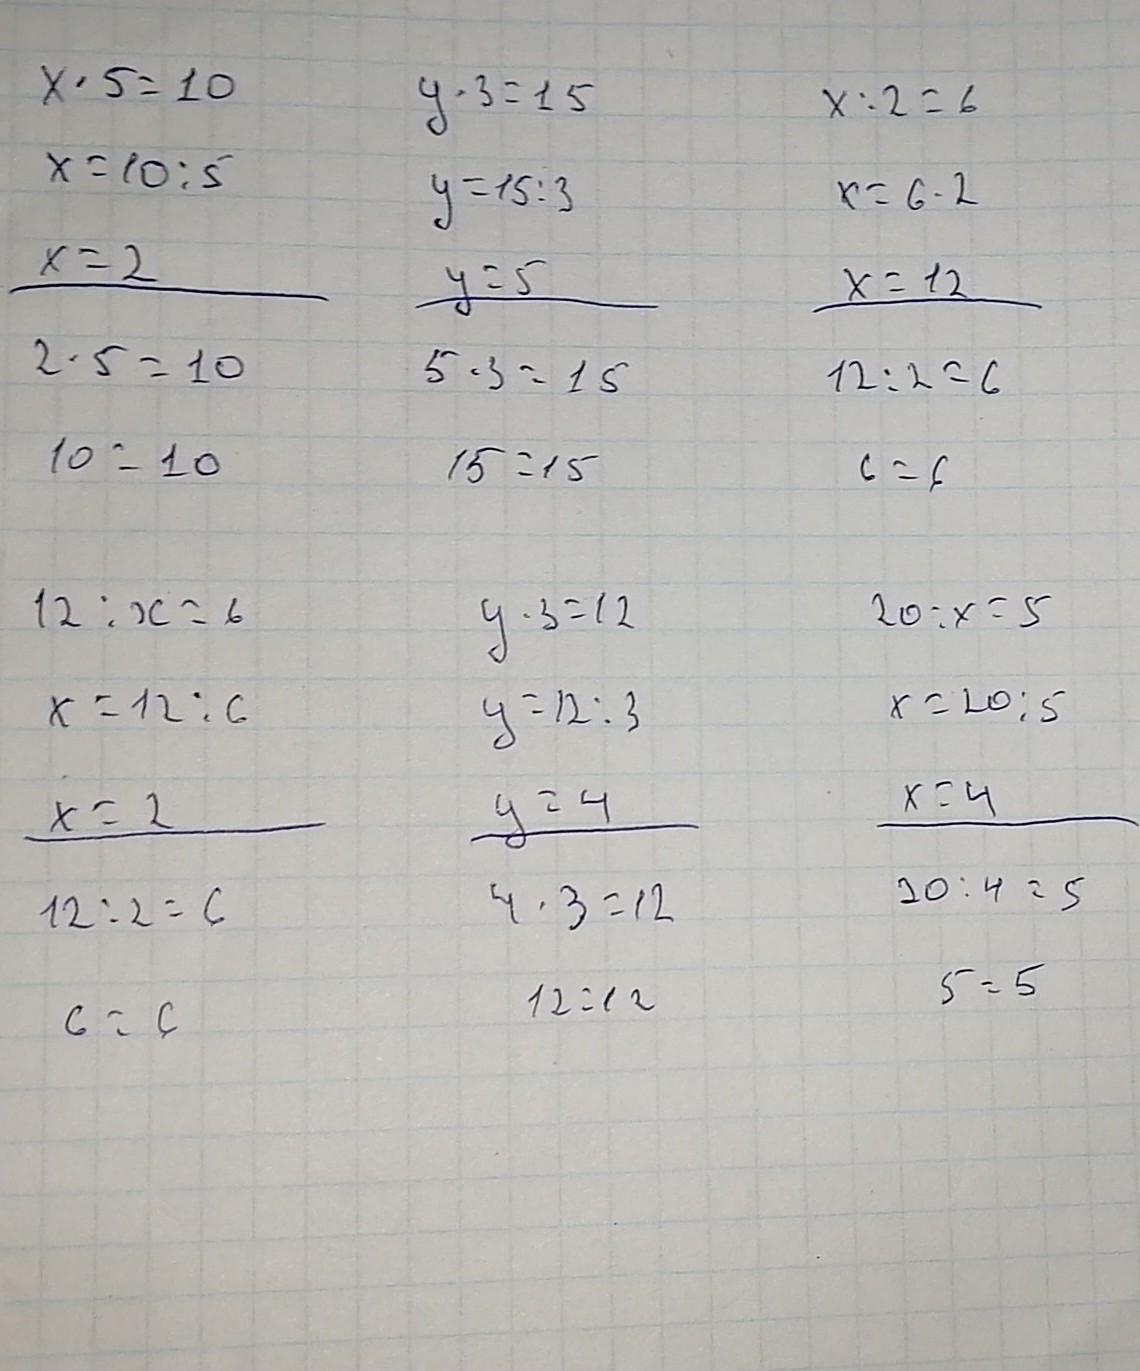 x · 5 = 10
x = 10 : 5
x = 2
2 · 5 = 10
10 = 10
y · 3 = 15
y = 15 : 3
y = 5
5 · 3 = 15
15 = 15
x : 2 = 6
x = 6 · 2
x = 12
12 : 2 = 6
6 = 6
12 : x = 6
x = 12 : 6
x = 2
12 : 2 = 6
6 = 6
y · 3 = 12
y = 12 : 3
y = 4
4 · 3 = 12
12 = 12
20 : x = 5
x = 20 : 5
x = 4
20 : 4 = 5
5 = 5